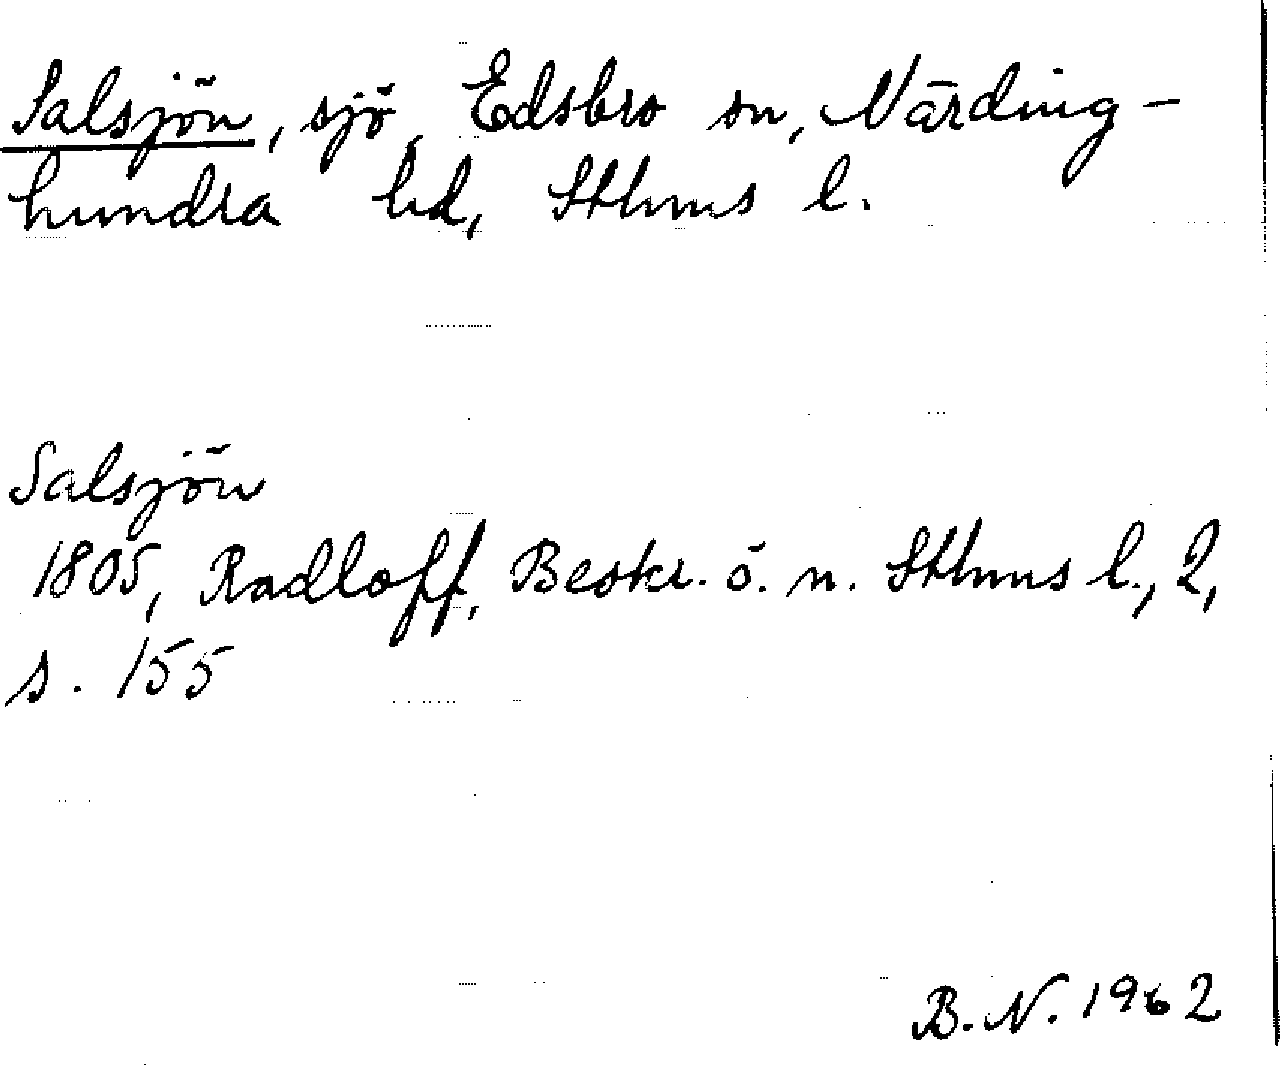 Salsjön, sjö, Edsbro sn, Närding-
hundra hd, Sthlms l.
Salsjön
1805, Radloff, Beskr. ö. n. Sthlms l., 2,
s. 155
B.N. 1962